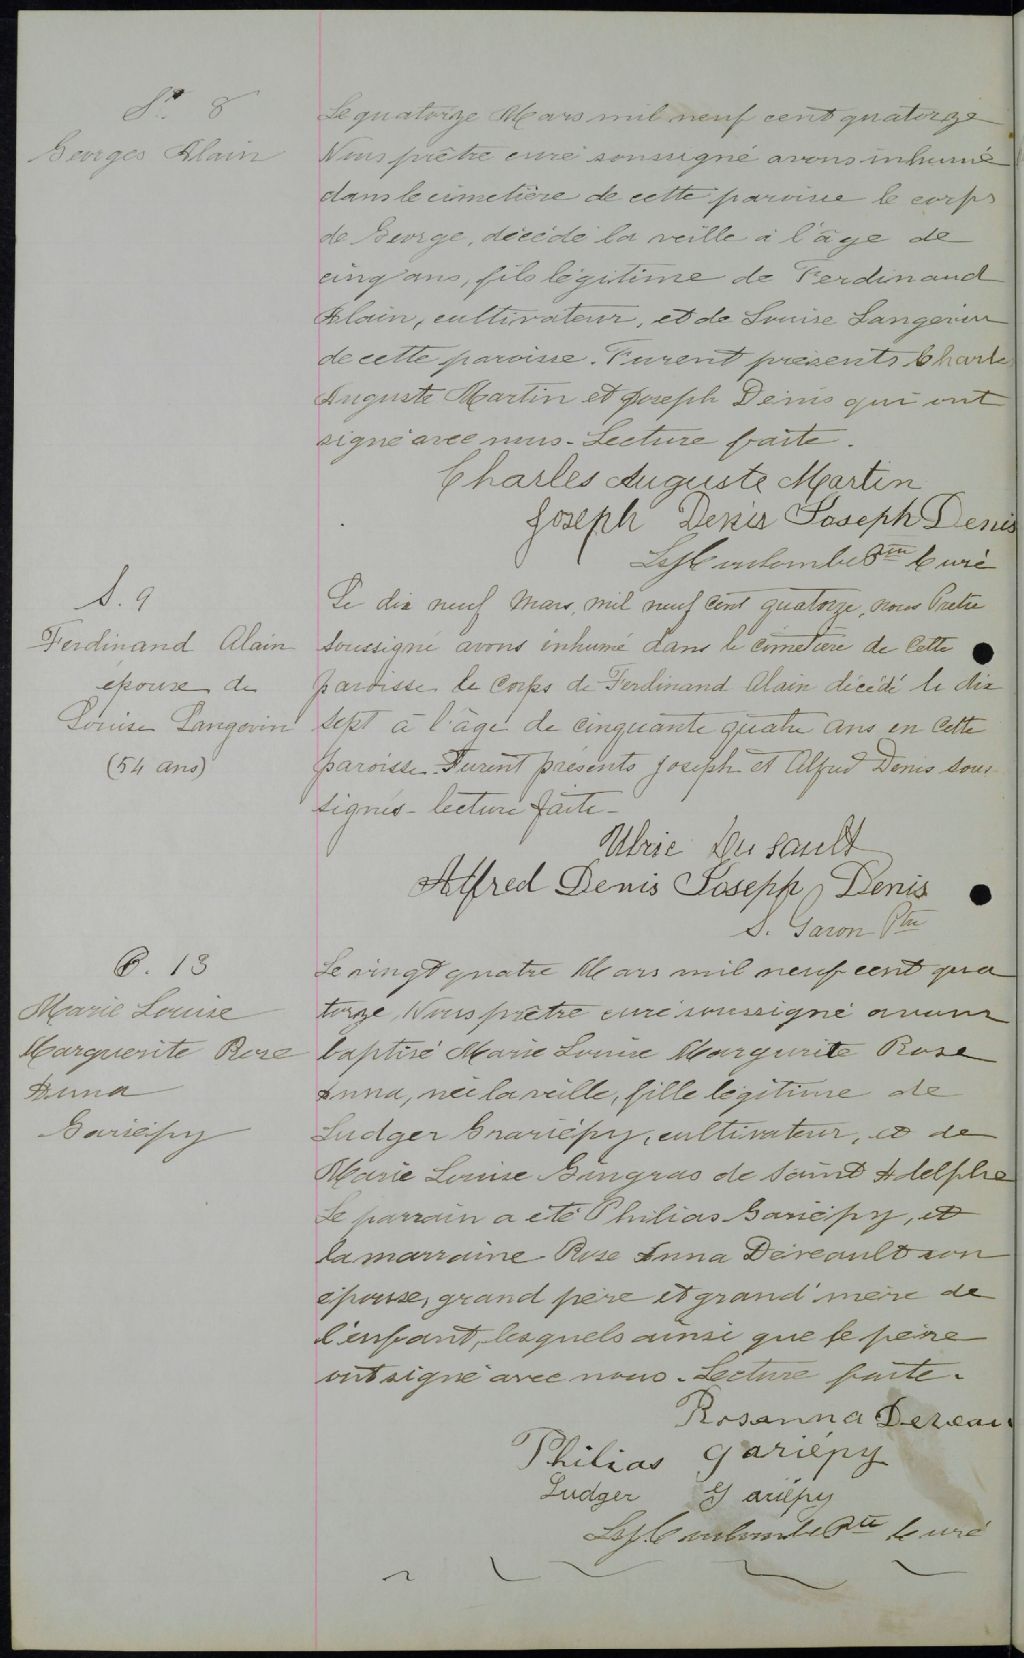 S. 8
Georges Alain
Le quatorze Mars mil neuf cent quatorze
Nous prêtre curé soussigné avons inhumé
dans le cimetière de cette paroisse le corps
de George, décédé la veille à l'âge de
cinq ans, fils légitime de Ferdinand
Alain, cultivateur, et de Louise Langevin
de cette paroisse. Furent présents Charles
Auguste Martin et Joseph Denis qui ont
signé avec nous. Lecture faite.
Charles Auguste Martin
Joseph Denis Joseph Denis
Coulombe Ptre Curé
S. 9
Ferdinand Alain
époux de
Louise Langevin
(54 ans)
Le dix neuf Mars, mil neuf cent quatorze, nous Prêtre
soussigné avons inhumé dans le cimetière de cette
paroisse le corps de Ferdinand Alain décédé le dix
sept à l'âge de cinquante quatre ans en cette
paroisse. Furent présents Joseph et Alfred Denis sous-
signés - lecture faite -
Ulric Dusault
Alfred Denis Joseph Denis
S. Garon Ptre
B. 13
Marie Louise
Marguerite Rose
Anna
Gariépy
Le vingt quatre Mars mil neuf cent qua
torze, Nous prêtre curé soussigné avons
baptisé Marie Louise Margurite Rose
Anna, née la veille, fille légitime de
Ludger Gnariépy, cultivateur, et de
Marie Louise Gingras de Saint Adelphe
Le parrain a été Philias Gariépy, et
la marraine Rose Anna Devreault son
épouse, grand père et grand'mère de
l'enfant, lesquels ainsi que le père
ont signé avec nous. Lecture faite.
Rosanna Dereau
Philias Gariépy
Ludger Gariépy
Coulombe Ptre Curé